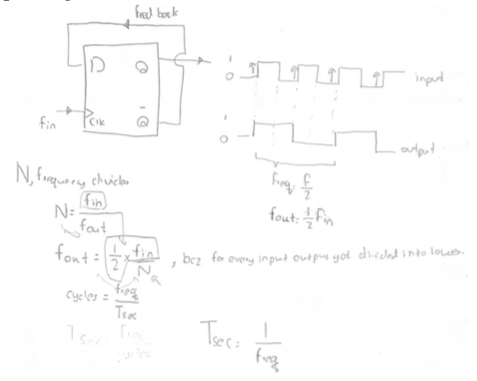 feed back
D Q
Clk Q̄
fin
1
0
input
1
0
output
freq: f/2
fout: 1/2 fin
N, frequency divider
N = fin/fout
fout = 1/2 × fin/N , bcz for every input output got divided into lower.
cycles = freq/Tsec
Tsec: freq/cycles
Tsec: 1/freq